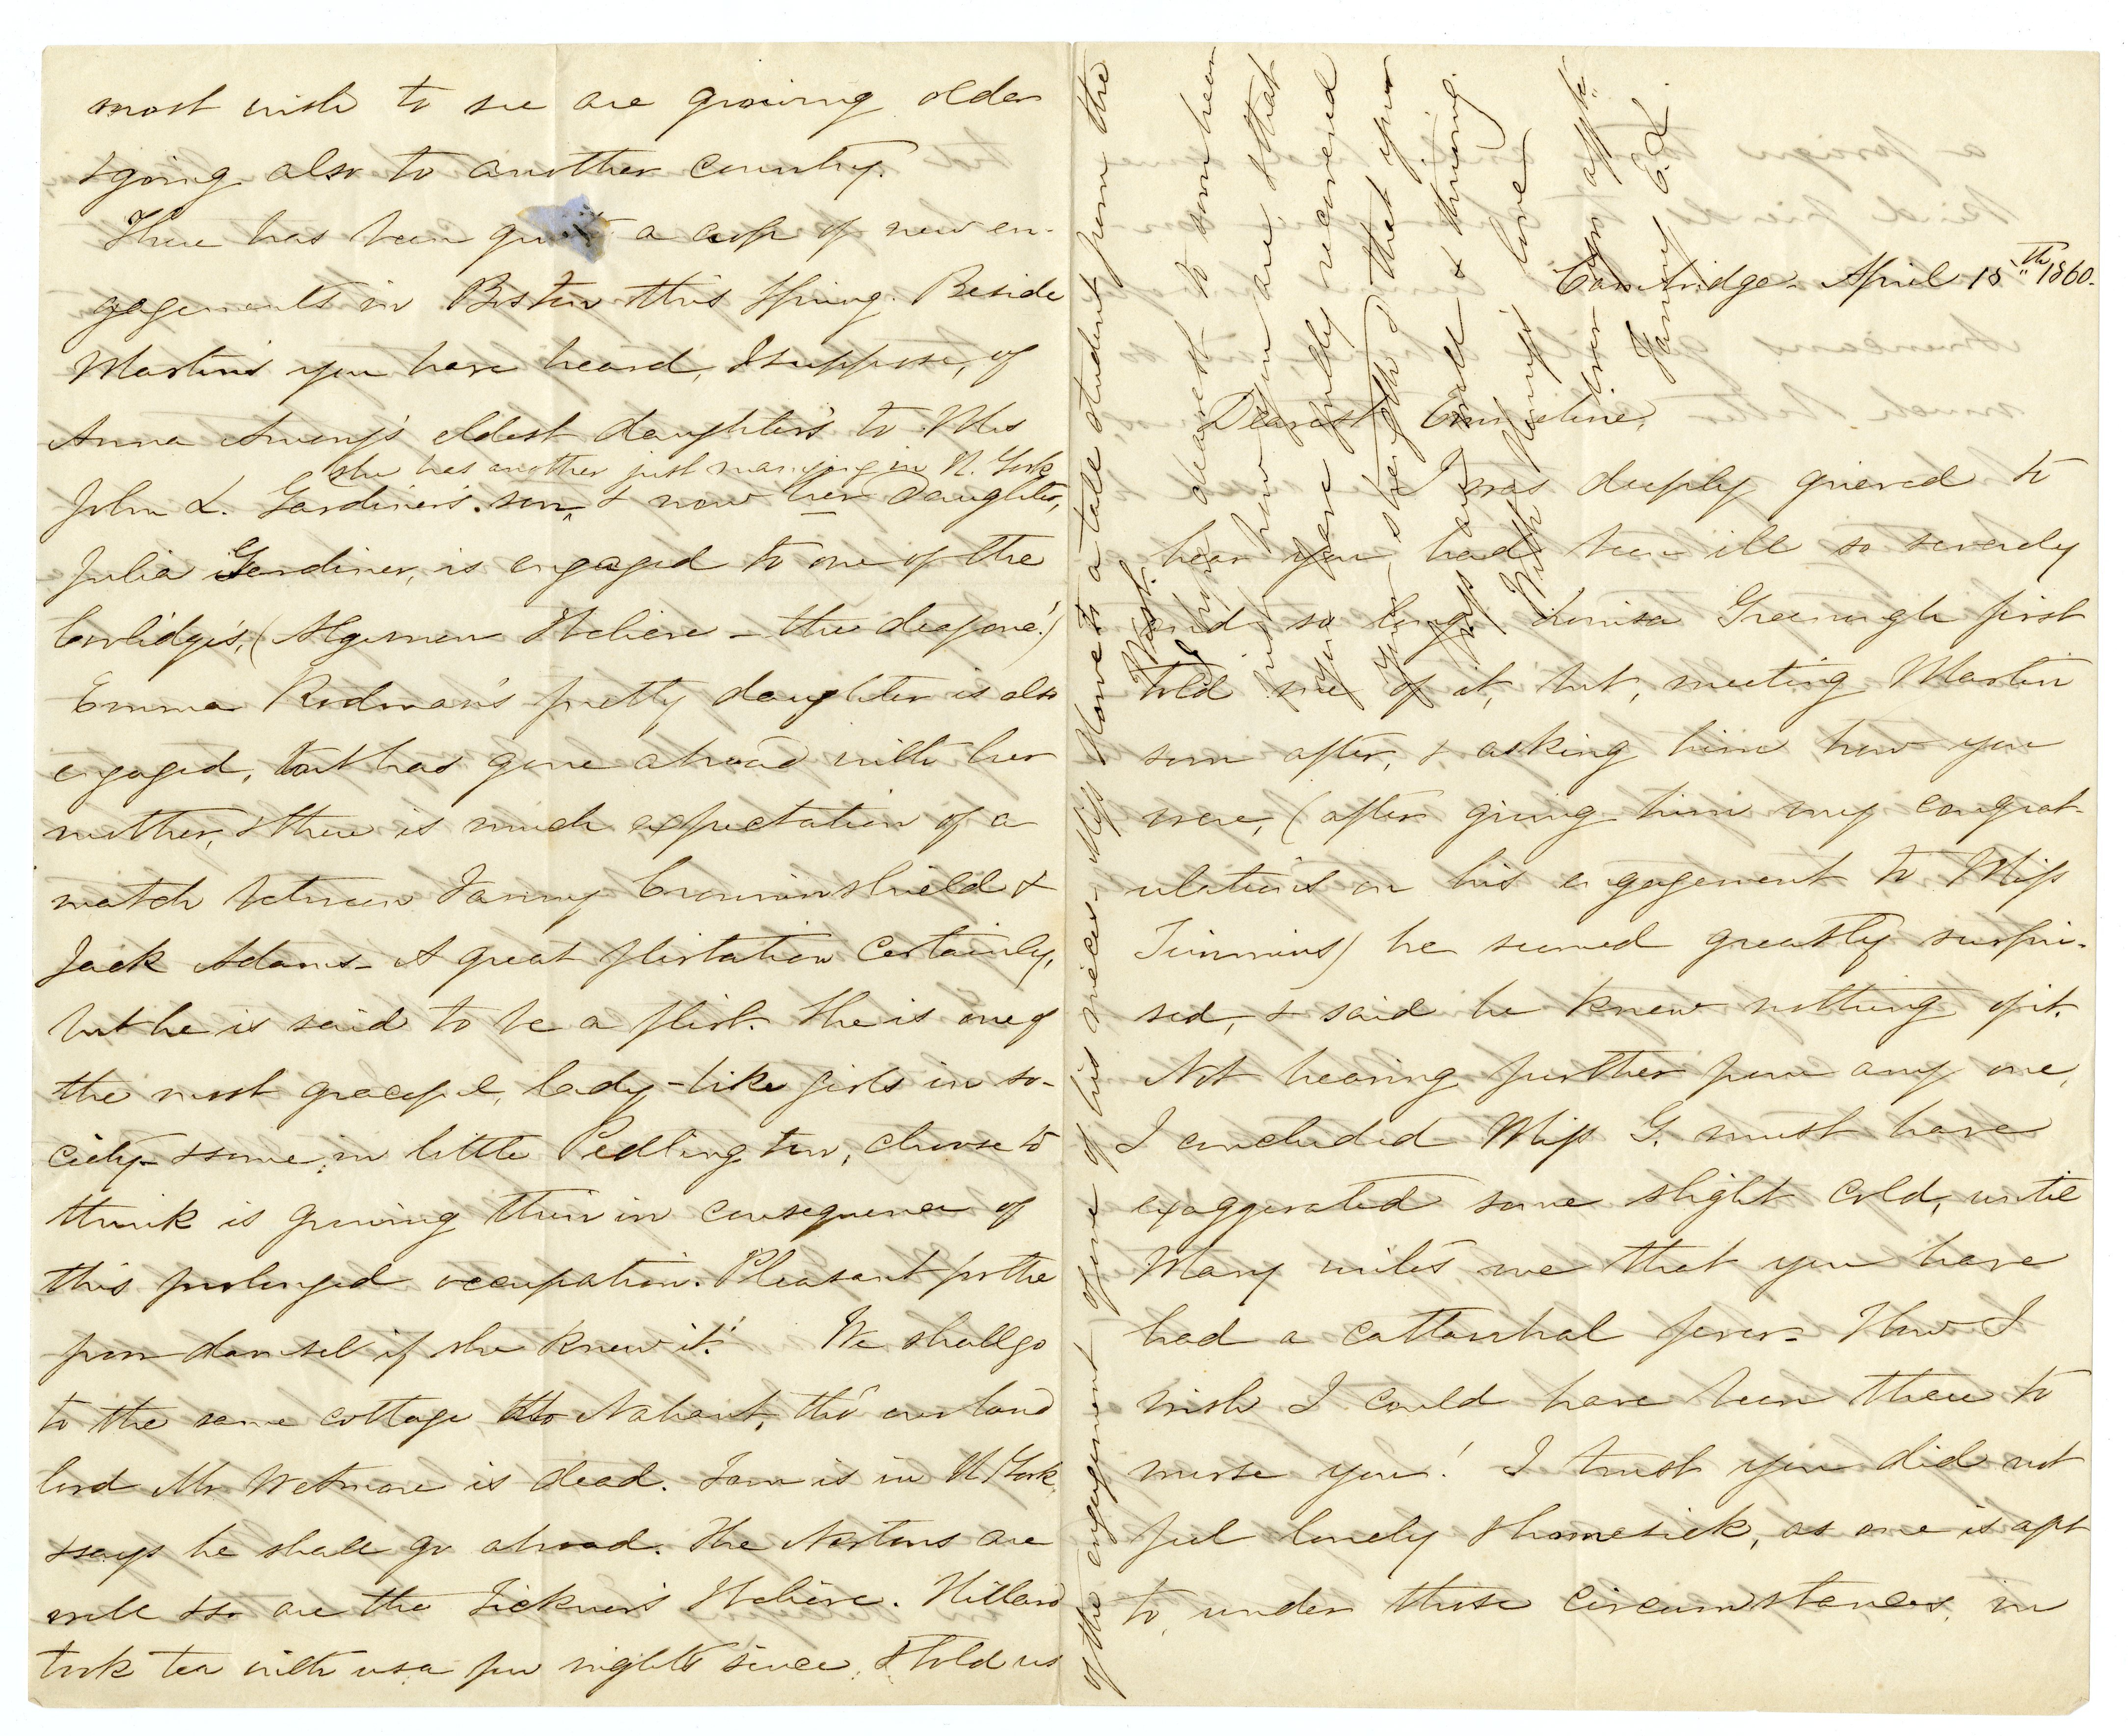 Cambridge April 18th 1860.
Dearest Emmeline,
I was deeply grieved to
hear you had been ill so severely
and so long. Louisa Greenough first
told me of it, but, meeting Martin
soon after, & asking him how you
were, (after giving him my congrat-
ulations on his engagement to Miss
Timmins) he seemed greatly surpri-
sed, & said he knew nothing of it.
Not hearing further from any one,
I concluded Miss G. must have
exaggerated some slight cold, until
Mary writes me that you have
had a cattarrhal fever. How I
wish I could have been there to
nurse you! I trust you did not
feel lonely & homesick, as one is apt
to, under those circumstances, in
most wish to see are growing older
& going also to another country.
There has been quite a crop of new en-
gagements in Boston this Spring. Beside
Martin's you have heard, I suppose, of
Anna Amory's eldest daughter's to Mrs
she has another just marrying in N. York
John L. Gardiner's son, & now her daughter,
Julia Gardiner, is engaged to one of the
Coolidge's, (Algernon I believe – the deaf one!)
Emma Rodman's pretty daughter is also
engaged, but has gone abroad with her
mother, & there is much expectation of a
match between Fanny Crowninshield &
Jack Adams – A great flirtation certainly,
but he is said to be a flirt. She is one of
the most graceful, lady-like girls in so-
ciety – & some, in little Pedlington, choose to
think is growing thin in consequence of
this prolonged occupation. Pleasant for the
poor damsel if she knew it! We shall go
to the same cottage, to Nahant, tho' our land
lord Mr Wetmore is dead. Tom is in N. York
& says he shall go abroad. The Nortons are
well & so are the Ticknor's I believe. Hillard
took tea with us a few nights since, & told us
of the engagement of one of his nieces – Miss Howe to a law student from the
West.
I hope dearest to soon hear
just how you are, & that
you have fully recovered
your strength & that your
are well & thriving.
With love
Ever yr affte
Fanny E. L.